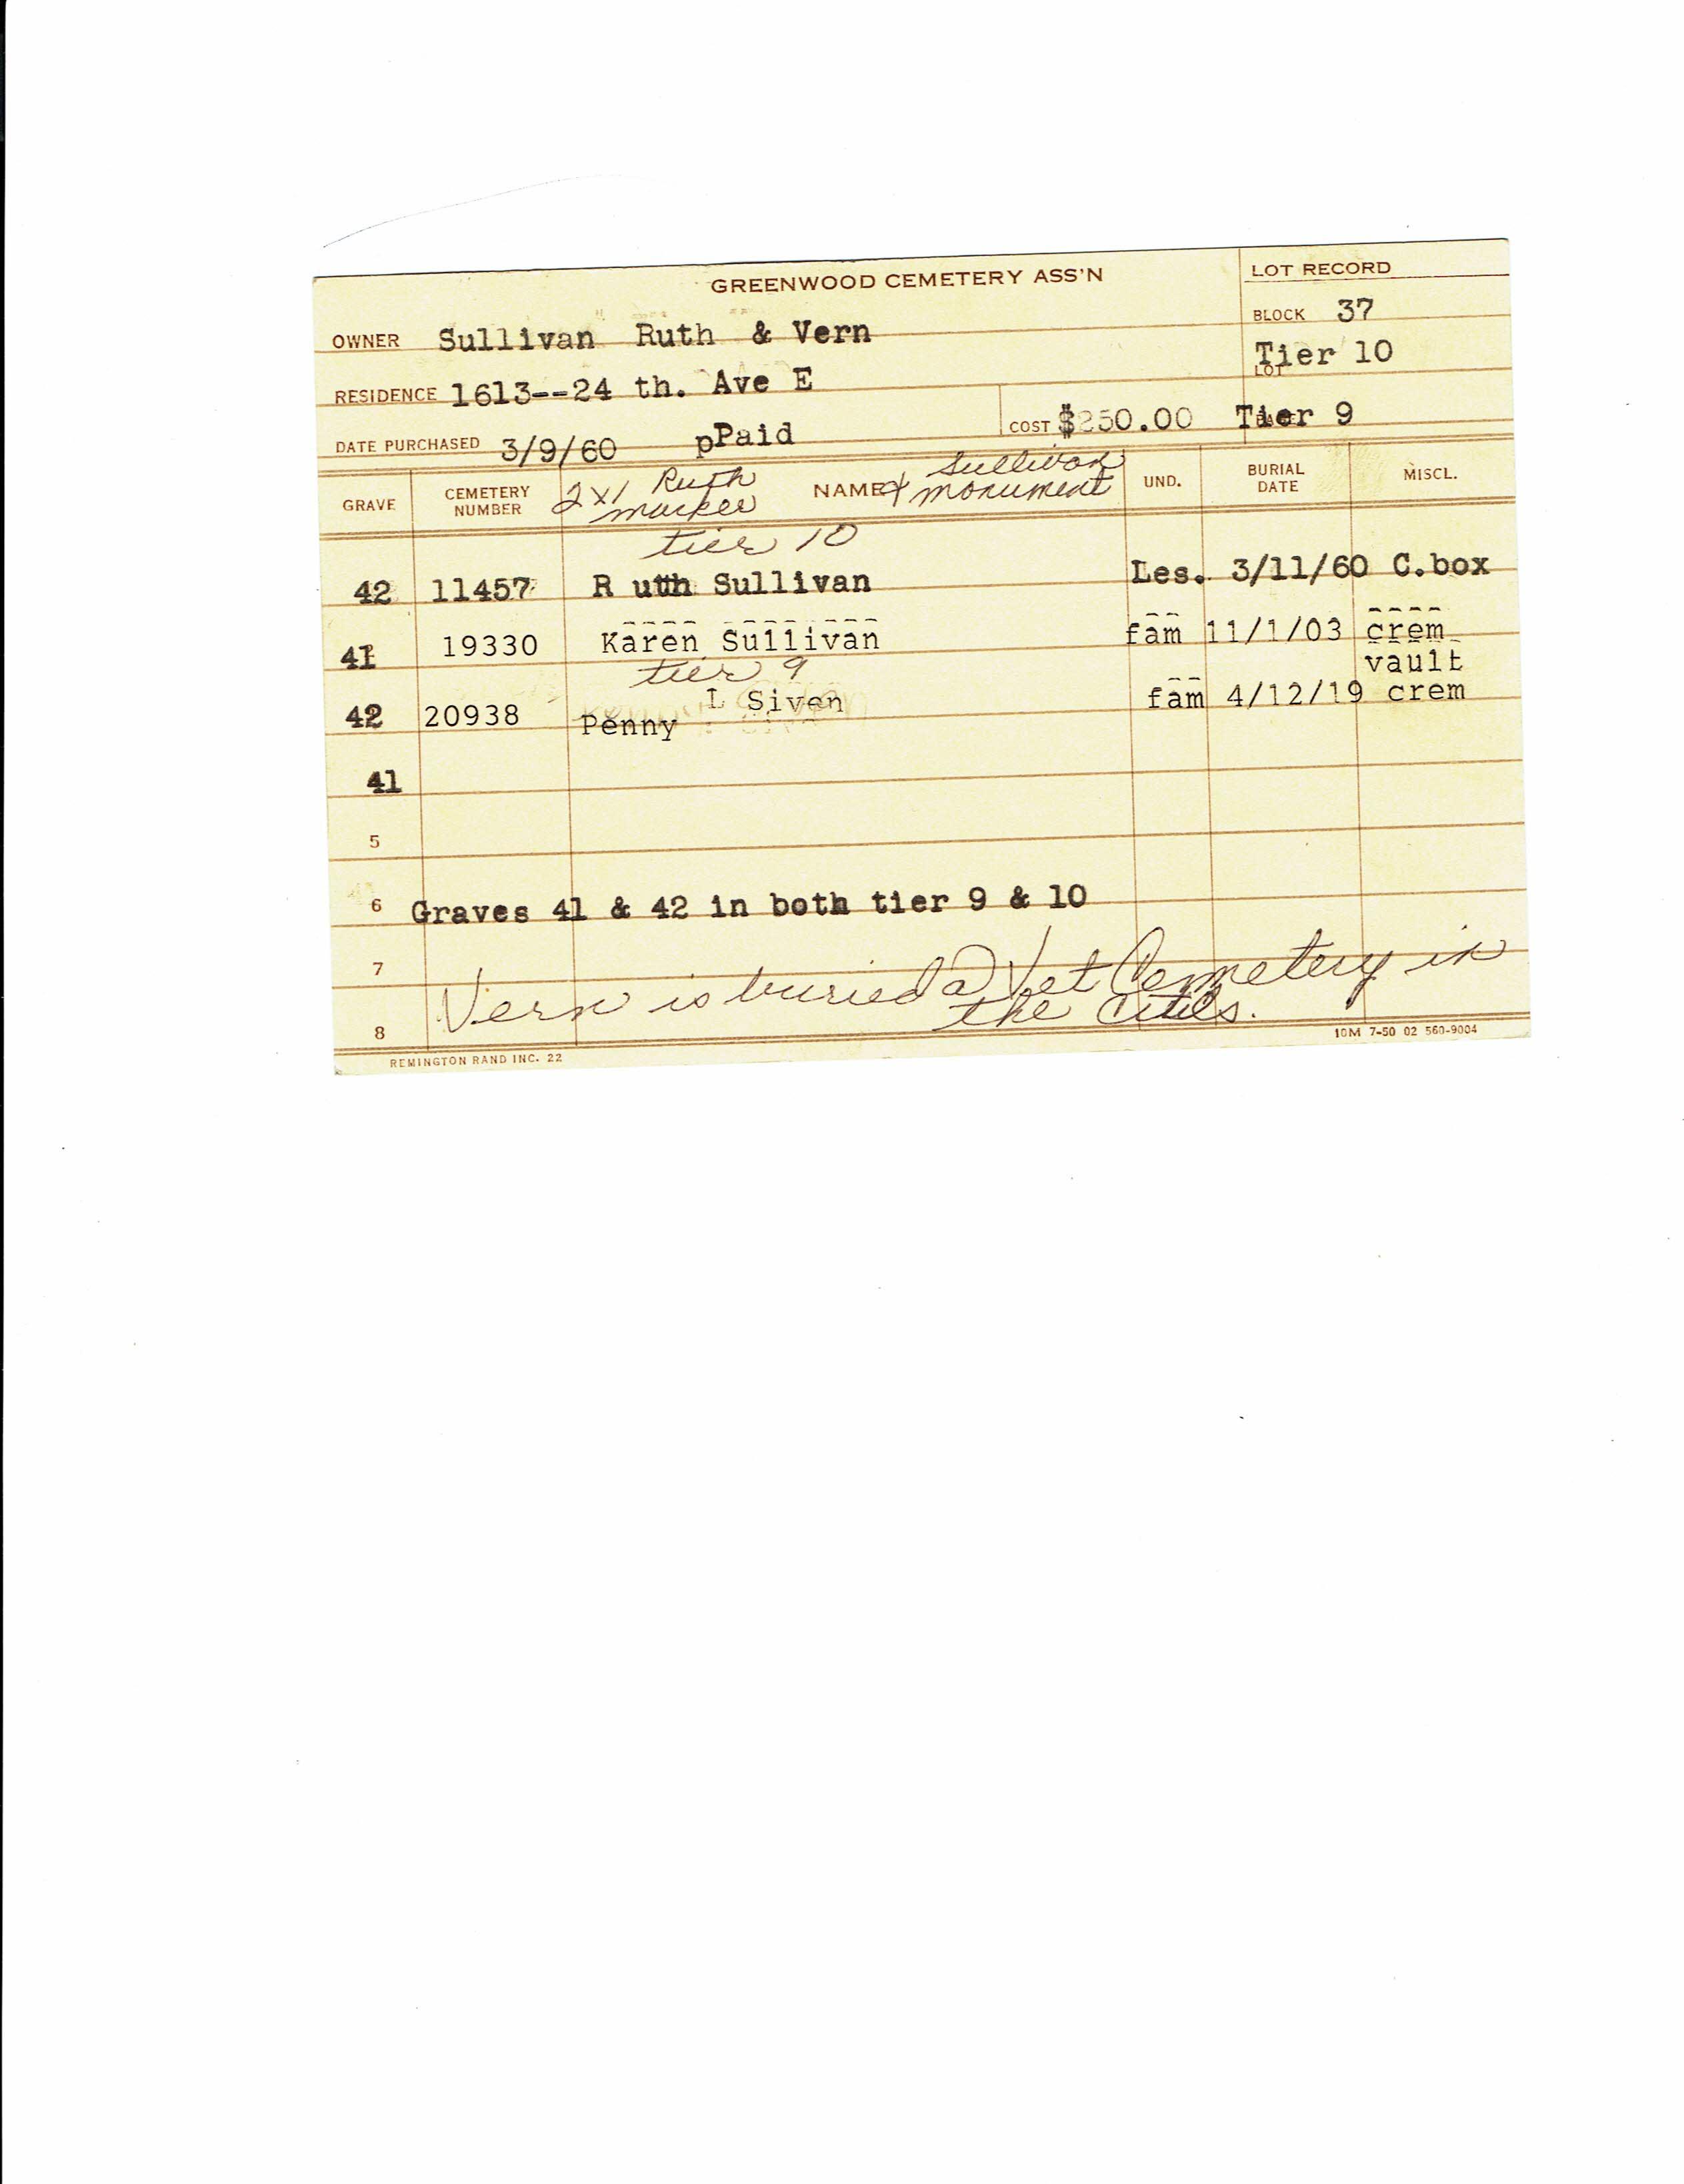 GREENWOOD CEMETERY ASS'N
LOT RECORD
OWNER Sullivan Ruth & Vern
BLOCK 37
RESIDENCE 1613--24 th. Ave E
LOT Tier 10
DATE PURCHASED 3/9/60 pPaid COST $250.00 Tier 9
GRAVE CEMETERY NUMBER 2x1 Ruth marker NAME & Sullivan monument UND. BURIAL DATE MISCL.
tier 10
42 11457 R uth Sullivan Les. 3/11/60 C.box
41 19330 Karen Sullivan fam 11/1/03 crem vault
tier 9
42 20938 Penny L Siven fam 4/12/19 crem
41
5
6 Graves 41 & 42 in both tier 9 & 10
7
Vern is buried @ Vet Cemetery in
8 the Cities.
REMINGTON RAND INC. 22
10M 7-50 02 560-9004